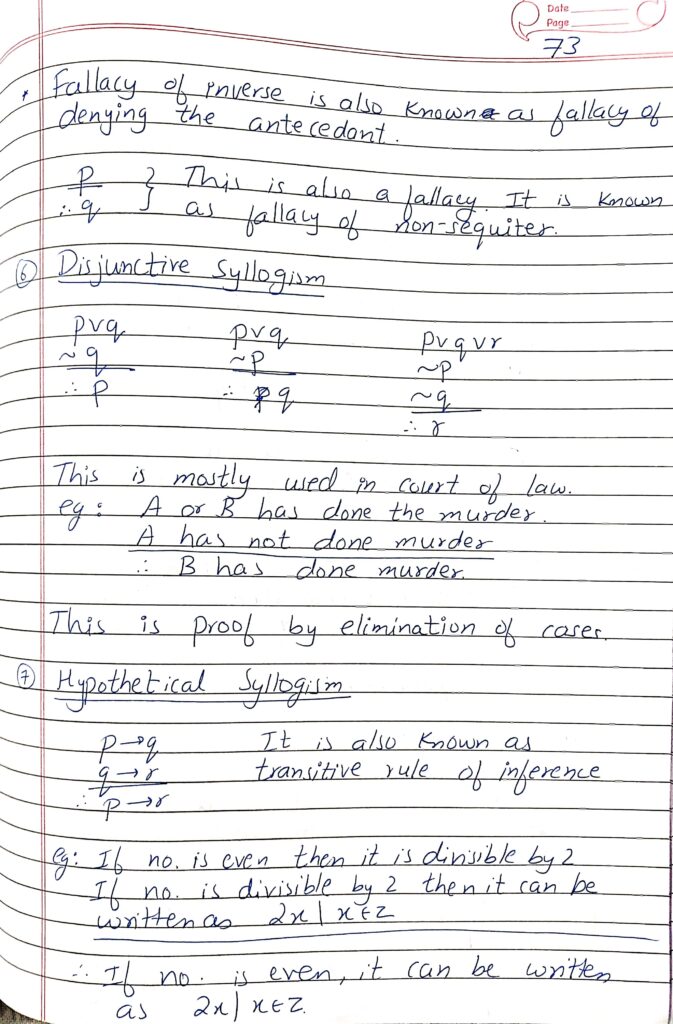 Date
Page
73
* Fallacy of inverse is also known as fallacy of
denying the antecedant.
p } This is also a fallacy. It is known
∴ q as fallacy of non-sequiter.
⑥ Disjunctive Syllogism
p∨q p∨q p∨q∨r
~q ~p ~p
∴ p ∴ q ~q
∴ r
This is mostly used in court of law.
eg: A or B has done the murder.
A has not done murder
∴ B has done murder.
This is proof by elimination of cases.
⑦ Hypothetical Syllogism
p→q It is also known as
q→r transitive rule of inference
∴ p→r
eg: If no. is even then it is dinisible by 2
If no. is divisible by 2 then it can be
written as 2x | x∈Z
∴ If no. is even, it can be written
as 2x | x∈Z.